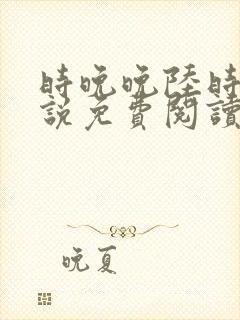 時晚晚陸時
說免費閱讀
晚夏